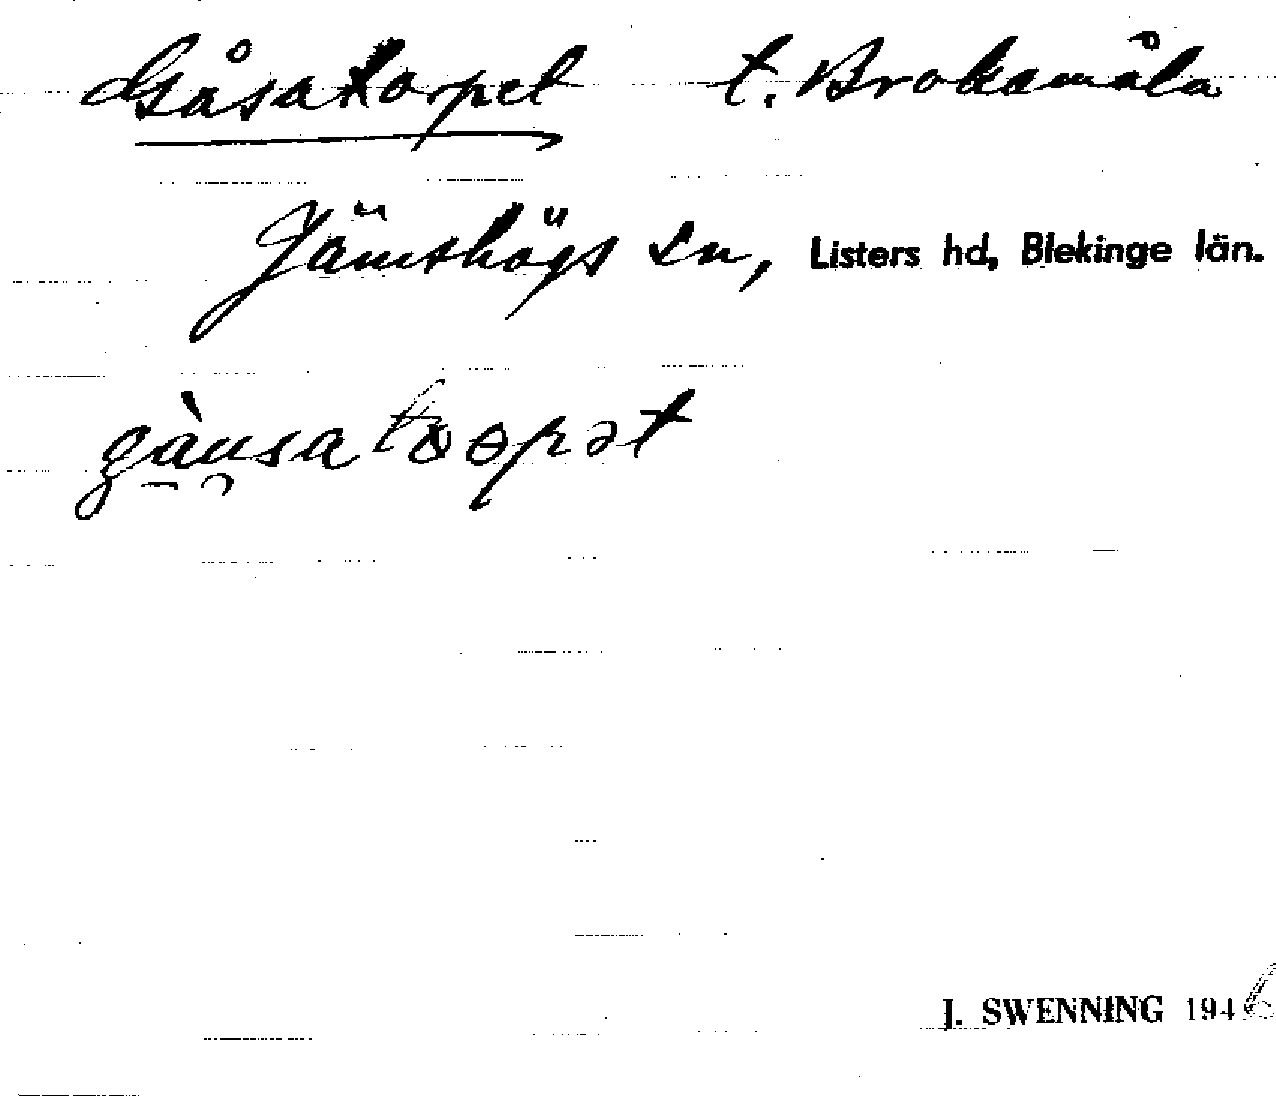 Gåsatorpet t. Brokamåla
Jämshögs sn, Listers hd, Blekinge län.
gàusatoopət
J. SWENNING 1946